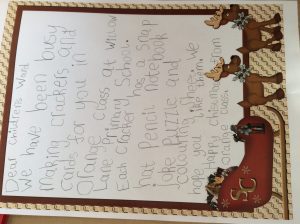 Dear Childrens Ward
We have been busy
making crackers and
cards for you in
Orange class at Willow
Lane Primary School.
Each cracker has a snap
hat Pencil Notebook
Joke Puzzle and
colouring sheet. We
hope you like them.
Happy christmas from
Orange class.
SC